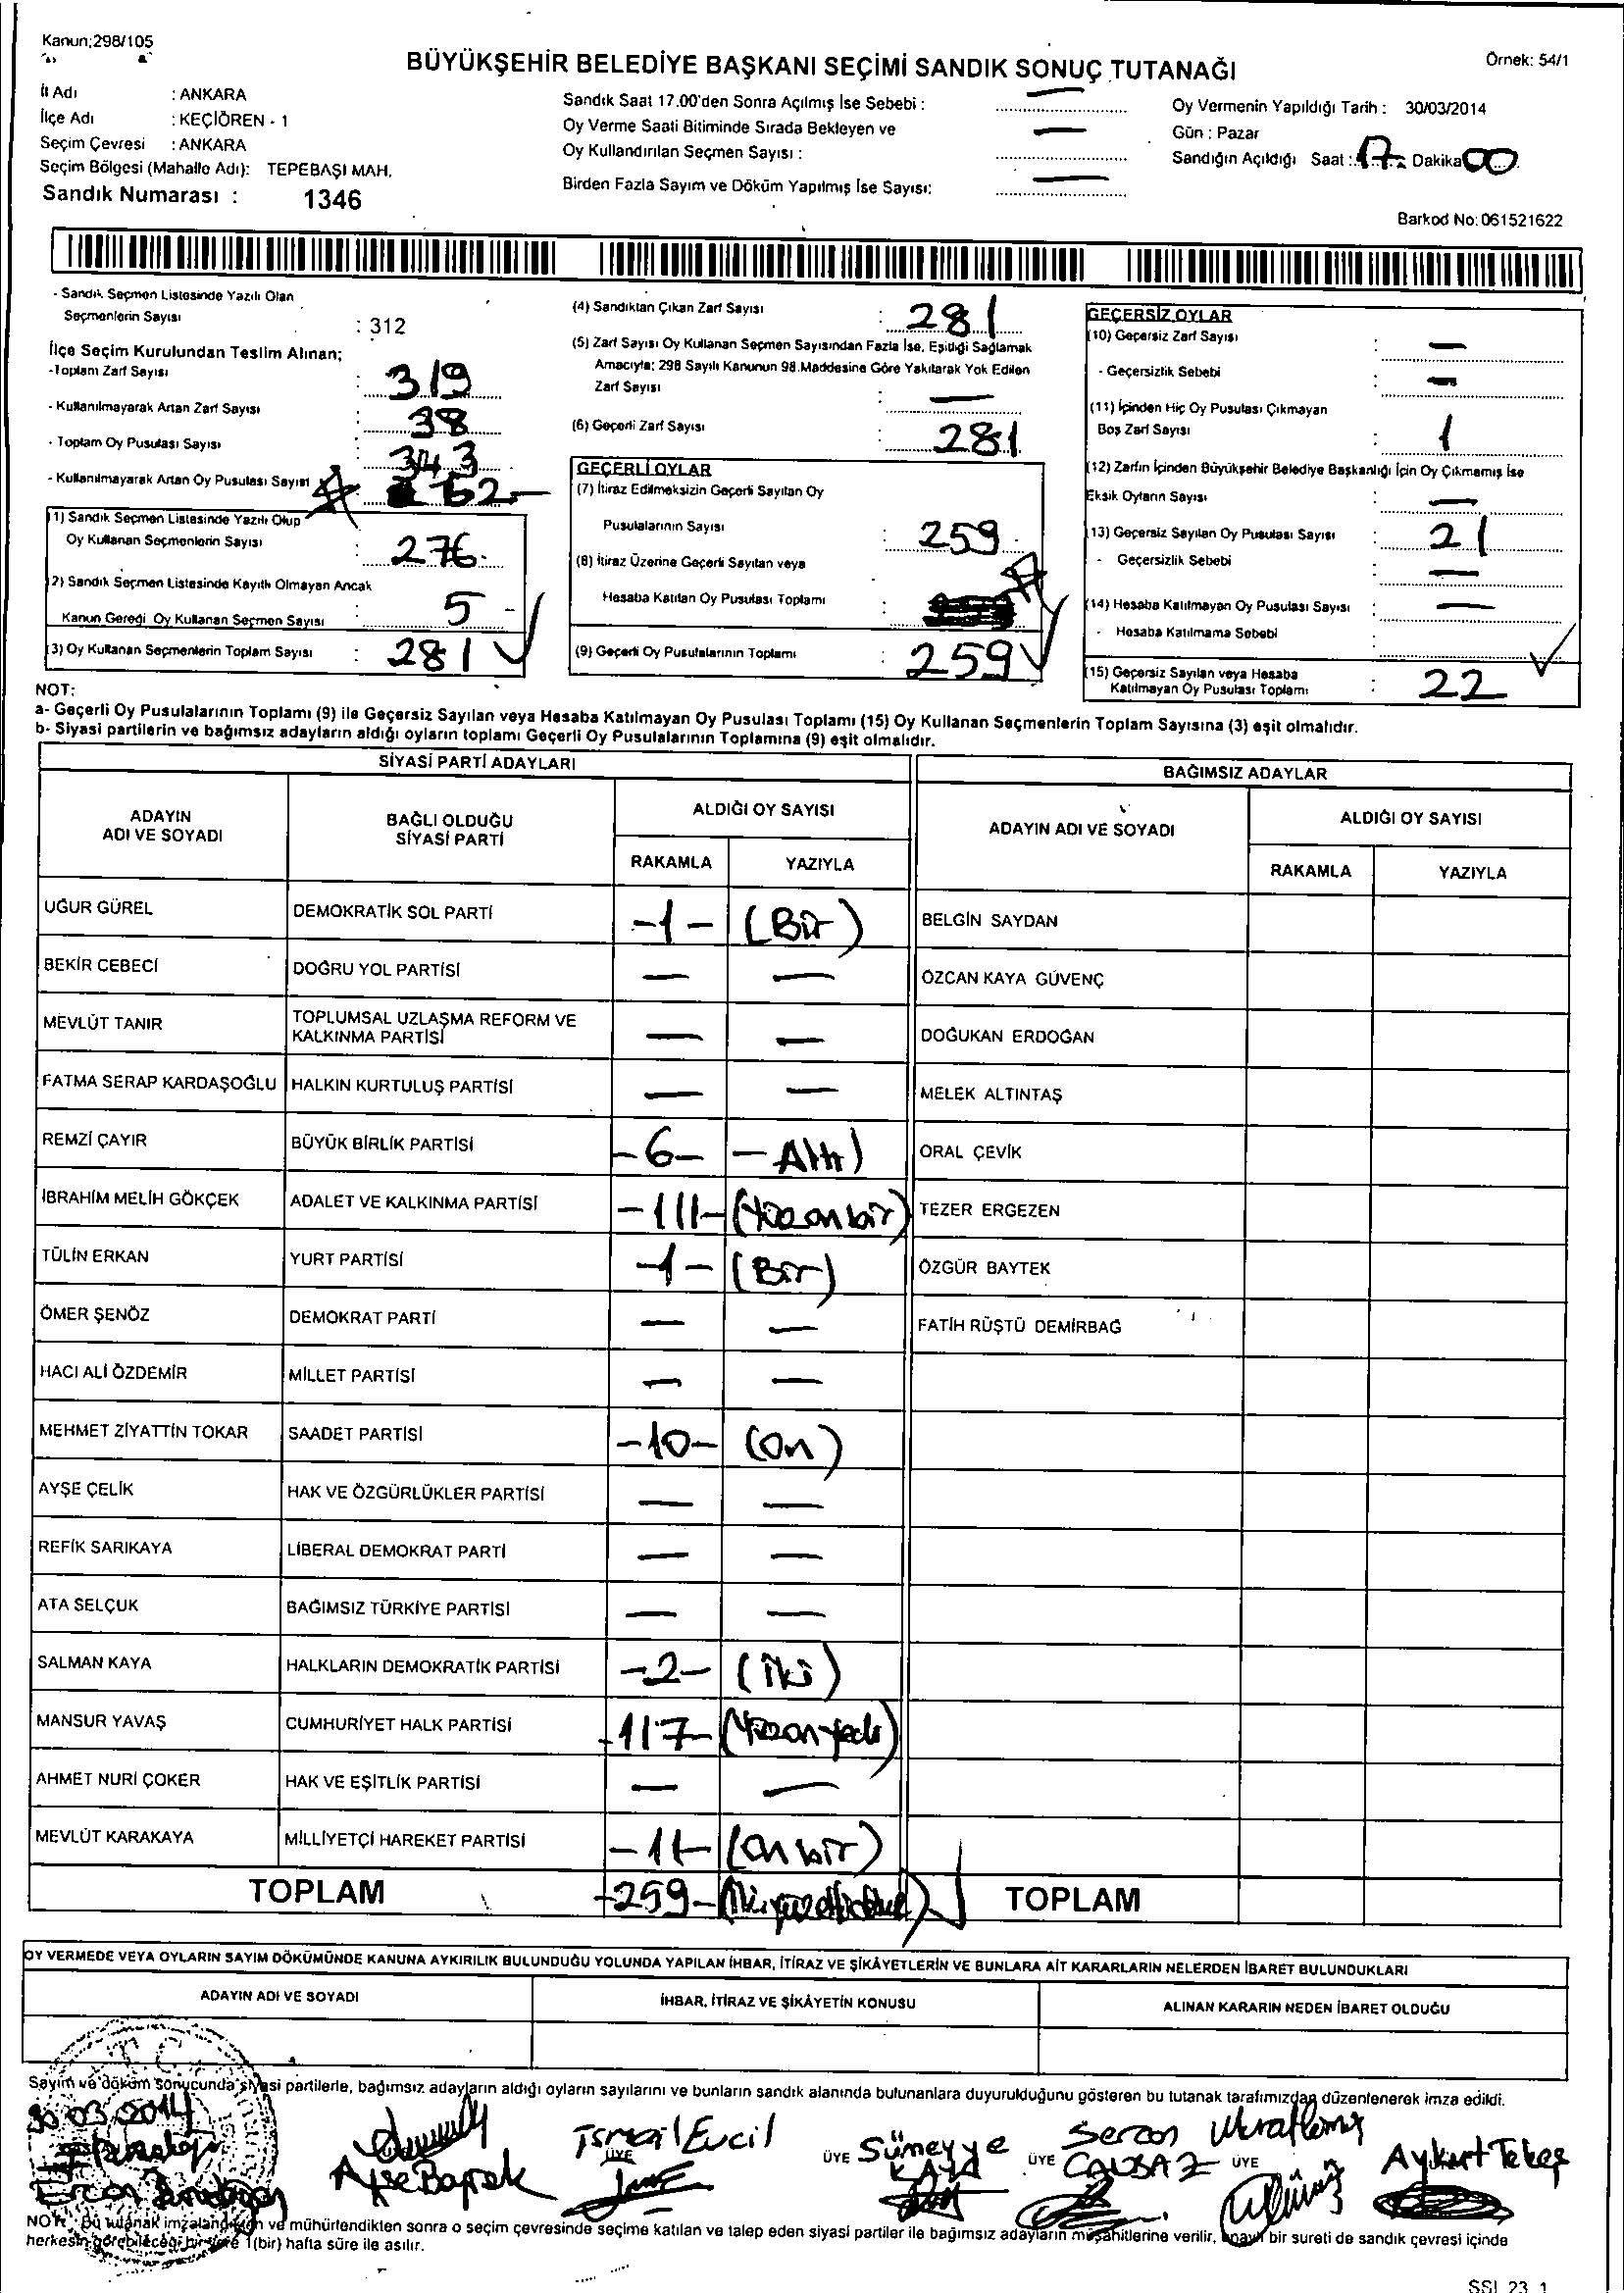 Kanun;298/105
BÜYÜKŞEHİR BELEDİYE BAŞKANI SEÇİMİ SANDIK SONUÇ TUTANAĞI
Örnek: 54/1
İl Adı : ANKARA
İlçe Adı : KEÇİÖREN - 1
Seçim Çevresi : ANKARA
Seçim Bölgesi (Mahalle Adı): TEPEBAŞI MAH.
Sandık Numarası : 1346
Sandık Saat 17.00'den Sonra Açılmış İse Sebebi : —
Oy Verme Saati Bitiminde Sırada Bekleyen ve
Oy Kullandırılan Seçmen Sayısı : —
Birden Fazla Sayım ve Döküm Yapılmış İse Sayısı: —
Oy Vermenin Yapıldığı Tarih : 30/03/2014
Gün : Pazar
Sandığın Açıldığı Saat : 17 Dakika 00
Barkod No: 061521622
- Sandık Seçmen Listesinde Yazılı Olan
Seçmenlerin Sayısı : 312
İlçe Seçim Kurulundan Teslim Alınan;
-Toplam Zarf Sayısı : 319
- Kullanılmayarak Artan Zarf Sayısı : 38
- Toplam Oy Pusulası Sayısı : 343
- Kullanılmayarak Artan Oy Pusulası Sayısı 62
(1) Sandık Seçmen Listesinde Yazılı Olup
Oy Kullanan Seçmenlerin Sayısı : 276
(2) Sandık Seçmen Listesinde Kayıtlı Olmayan Ancak
Kanun Gereği Oy Kullanan Seçmen Sayısı : 5
(3) Oy Kullanan Seçmenlerin Toplam Sayısı : 281
(4) Sandıktan Çıkan Zarf Sayısı : 281
(5) Zarf Sayısı Oy Kullanan Seçmen Sayısından Fazla İse, Eşitliği Sağlamak
Amacıyla; 298 Sayılı Kanunun 98.Maddesine Göre Yakılarak Yok Edilen
Zarf Sayısı : —
(6) Geçerli Zarf Sayısı : 281
GEÇERLİ OYLAR
(7) İtiraz Edilmeksizin Geçerli Sayılan Oy
Pusulalarının Sayısı : 259
(8) İtiraz Üzerine Geçerli Sayılan veya
Hesaba Katılan Oy Pusulası Toplamı :
(9) Geçerli Oy Pusulalarının Toplamı : 259
GEÇERSİZ OYLAR
(10) Geçersiz Zarf Sayısı : —
- Geçersizlik Sebebi : —
(11) İçinden Hiç Oy Pusulası Çıkmayan
Boş Zarf Sayısı : 1
(12) Zarfın İçinden Büyükşehir Belediye Başkanlığı İçin Oy Çıkmamış İse
Eksik Oyların Sayısı : —
(13) Geçersiz Sayılan Oy Pusulası Sayısı : 21
- Geçersizlik Sebebi : —
(14) Hesaba Katılmayan Oy Pusulası Sayısı : —
- Hesaba Katılmama Sebebi :
(15) Geçersiz Sayılan veya Hesaba
Katılmayan Oy Pusulası Toplamı : 22
NOT:
a- Geçerli Oy Pusulalarının Toplamı (9) ile Geçersiz Sayılan veya Hesaba Katılmayan Oy Pusulası Toplamı (15) Oy Kullanan Seçmenlerin Toplam Sayısına (3) eşit olmalıdır.
b- Siyasi partilerin ve bağımsız adayların aldığı oyların toplamı Geçerli Oy Pusulalarının Toplamına (9) eşit olmalıdır.
SİYASİ PARTİ ADAYLARI
BAĞIMSIZ ADAYLAR
ADAYIN ADI VE SOYADI
BAĞLI OLDUĞU SİYASİ PARTİ
ALDIĞI OY SAYISI
RAKAMLA YAZIYLA
ADAYIN ADI VE SOYADI
ALDIĞI OY SAYISI
RAKAMLA YAZIYLA
UĞUR GÜREL DEMOKRATİK SOL PARTİ -1- (Bir) BELGİN SAYDAN
BEKİR CEBECİ DOĞRU YOL PARTİSİ — — ÖZCAN KAYA GÜVENÇ
MEVLÜT TANIR TOPLUMSAL UZLAŞMA REFORM VE KALKINMA PARTİSİ — — DOĞUKAN ERDOĞAN
FATMA SERAP KARDAŞOĞLU HALKIN KURTULUŞ PARTİSİ — — MELEK ALTINTAŞ
REMZİ ÇAYIR BÜYÜK BİRLİK PARTİSİ -6- -Altı) ORAL ÇEVİK
İBRAHİM MELİH GÖKÇEK ADALET VE KALKINMA PARTİSİ -111- (Yüzonbir) TEZER ERGEZEN
TÜLİN ERKAN YURT PARTİSİ -1- (Bir) ÖZGÜR BAYTEK
ÖMER ŞENÖZ DEMOKRAT PARTİ — — FATİH RÜŞTÜ DEMİRBAĞ
HACI ALİ ÖZDEMİR MİLLET PARTİSİ — —
MEHMET ZİYATTİN TOKAR SAADET PARTİSİ -10- (On)
AYŞE ÇELİK HAK VE ÖZGÜRLÜKLER PARTİSİ — —
REFİK SARIKAYA LİBERAL DEMOKRAT PARTİ — —
ATA SELÇUK BAĞIMSIZ TÜRKİYE PARTİSİ — —
SALMAN KAYA HALKLARIN DEMOKRATİK PARTİSİ -2- (İki)
MANSUR YAVAŞ CUMHURİYET HALK PARTİSİ -117- (Yüzonyedi)
AHMET NURİ ÇOKER HAK VE EŞİTLİK PARTİSİ — —
MEVLÜT KARAKAYA MİLLİYETÇİ HAREKET PARTİSİ -11- (Onbir)
TOPLAM -259- (İkiyüzellidokuz) TOPLAM
OY VERMEDE VEYA OYLARIN SAYIM DÖKÜMÜNDE KANUNA AYKIRILIK BULUNDUĞU YOLUNDA YAPILAN İHBAR, İTİRAZ VE ŞİKÂYETLERİN VE BUNLARA AİT KARARLARIN NELERDEN İBARET BULUNDUKLARI
ADAYIN ADI VE SOYADI İHBAR, İTİRAZ VE ŞİKÂYETİN KONUSU ALINAN KARARIN NEDEN İBARET OLDUĞU
T.C.
Sayım ve döküm sonucunda siyasi partilerle, bağımsız adayların aldığı oyların sayılarını ve bunların sandık alanında bulunanlara duyurulduğunu gösteren bu tutanak tarafımızdan düzenlenerek imza edildi.
30.03.2014
Ercan
Ayşe Bayrak
İsmail Evcil ÜYE
ÜYE Sümeyye KAYA
ÜYE Sercan
ÜYE
Aykurt Tekeş
NOT: Bu tutanak imzalandıktan ve mühürlendikten sonra o seçim çevresinde seçime katılan ve talep eden siyasi partiler ile bağımsız adayların müşahitlerine verilir, onaylı bir sureti de sandık çevresi içinde
herkesin görebileceği bir yere 1(bir) hafta süre ile asılır.
SSI 23 1